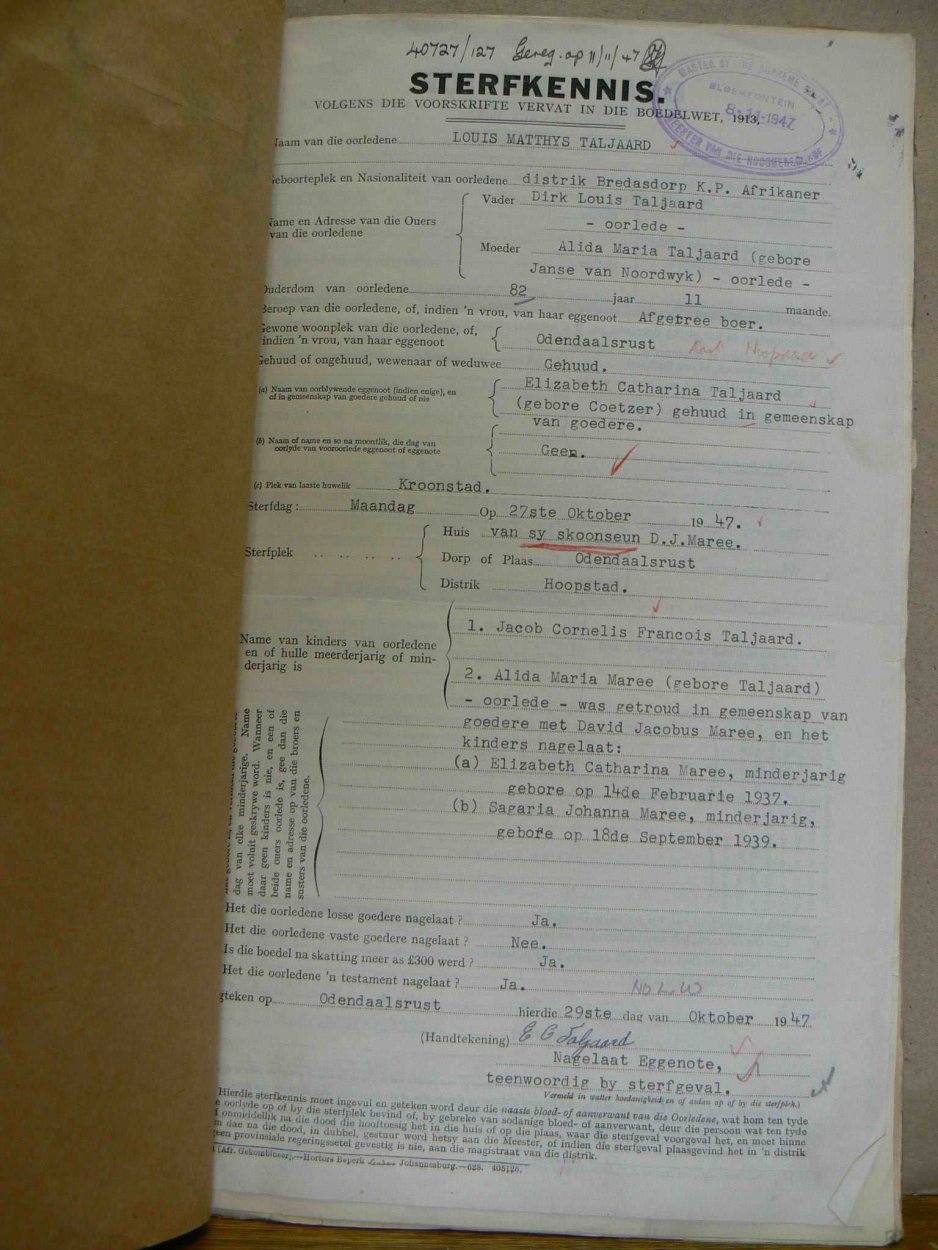 40727/127 Gereg. op 11/11/47
STERFKENNIS.
VOLGENS DIE VOORSKRIFTE VERVAT IN DIE BOEDELWET, 1913,
MASTER OF THE SUPREME COURT
BLOEMFONTEIN
8-11-1947
Naam van die oorledene LOUIS MATTHYS TALJAARD
Geboorteplek en Nasionaliteit van oorledene distrik Bredasdorp K.P. Afrikaner
Name en Adresse van die Ouers van die oorledene
Vader Dirk Louis Taljaard
- oorlede -
Moeder Alida Maria Taljaard (gebore
Janse van Noordwyk) - oorlede -
Ouderdom van oorledene 82 jaar 11 maande.
Beroep van die oorledene, of, indien 'n vrou, van haar eggenoot Afgetree boer.
Gewone woonplek van die oorledene, of,
indien 'n vrou, van haar eggenoot Odendaalsrust
Gehuud of ongehuud, wewenaar of weduwee Gehuud.
(a) Naam van oorblywende eggenoot (indien enige), en
of in gemeenskap van goedere gehuud of nie
Elizabeth Catharina Taljaard
(gebore Coetzer) gehuud in gemeenskap
van goedere.
(b) Naam of name en so na moontlik, die dag van
oorlyde van vooroorlede eggenoot of eggenote
Geen.
(c) Plek van laaste huwelik Kroonstad.
Sterfdag: Maandag Op 27ste Oktober 1947.
Sterfplek
Huis van sy skoonseun D.J.Maree.
Dorp of Plaas Odendaalsrust
Distrik Hoopstad.
Name van kinders van oorledene
en of hulle meerderjarig of min-
derjarig is
1. Jacob Cornelis Francois Taljaard.
2. Alida Maria Maree (gebore Taljaard)
- oorlede - was getroud in gemeenskap van
goedere met David Jacobus Maree, en het
kinders nagelaat:
(a) Elizabeth Catharina Maree, minderjarig
gebore op 14de Februarie 1937.
(b) Sagaria Johanna Maree, minderjarig,
gebore op 18de September 1939.
dag van elke minderjarige. Name
moet voluit geskrywe word. Wanneer
daar geen kinders is nie, en een of
beide ouers oorlede is, gee dan die
name en adresse op van die broers en
susters van die oorledene.
Het die oorledene losse goedere nagelaat? Ja.
Het die oorledene vaste goedere nagelaat? Nee.
Is die boedel na skatting meer as £300 werd? Ja.
Het die oorledene 'n testament nagelaat? Ja. No L.W
gteken op Odendaalsrust hierdie 29ste dag van Oktober 1947
(Handtekening) E C Taljaard
Nagelaat Eggenote,
teenwoordig by sterfgeval.
Vermeld in watter hoedanigheid en of aldan op of by die sterfplek.)
Hierdie sterfkennis moet ingevul en geteken word deur die naaste bloed- of aanverwant van die Oorledene, wat hom ten tyde
e oorlyde op of by die sterfplek bevind of, by gebreke van sodanige bloed- of aanverwant, deur die persoon wat ten tyde
onmiddellik na die dood die hooftoesig het in die huis of op die plaas, waar die sterfgeval voorgeval het, en moet binne
n dae na die dood, in dubbel, gestuur word hetsy aan die Meester, of indien die sterfgeval plaasgevind het in 'n distrik
een provinsiale regeringssetel gevestig is nie, aan die magistraat van die distrik.
[Afr. Gekombineer].—Hortors Beperk Johannesburg.—628. 405126.